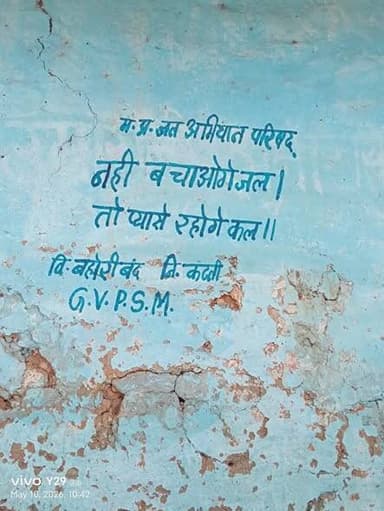 म. प्र. जन अभियान परिषद्
नही बचाओगे जल।
तो प्यासे रहोगे कल॥
वि. बहोरीबंद जि. कटनी
G.V.P.S.M.
vivo Y29
May 10, 2026, 10:42